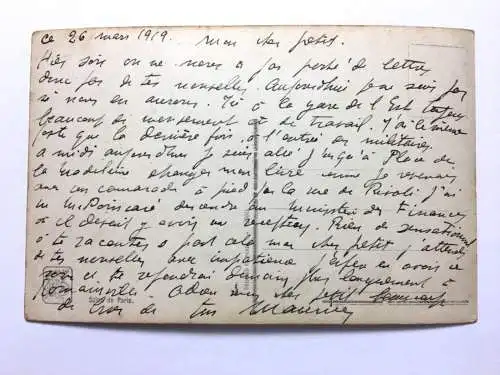 ce 26 mars 1919. Mon cher petit.
Hier soir on ne nous a pas porté de lettres
donc pas de tes nouvelles. Aujourd'hui je ne sais pas
si nous en aurons. Ici à la gare de l'Est toujours
beaucoup de mouvement et de travail. J'ai le même
poste que la dernière fois, à l'entrée des militaires
a midi aujourd'hui je suis allé jusqu'à Place de
la Madeleine changer mon livre comme je revenais
avec un camarade à pied par la rue de Rivoli j'ai
vu M. Poincaré descendre au ministère des Finances
où il devait y avoir un reception. Rien de sensationnel
à te raconter a part cela mon cher petit j'attends
de tes nouvelles avec impatience j'espère en avoir ce
soir et te répondrai demain plus longuement à
Romainville. Adieu mon cher petit beaucoup
de de ton Maurice
Salon de Paris.